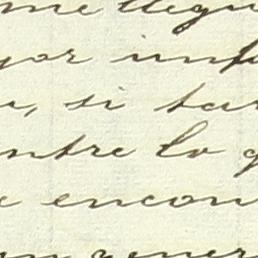 me llegu
yor inf
, si tar
ntre lo q
e encon
gener